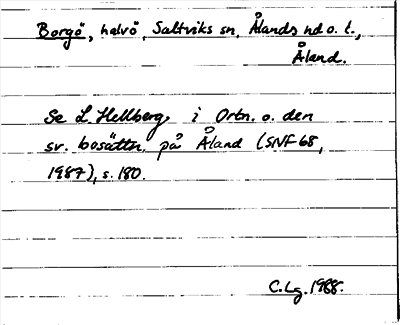 Borgö, halvö, Saltviks sn, Ålands hd o. t.,
Åland.
Se L. Hellberg, i Ortn. o. den
sv. bosättn. på Åland (SNF 68,
1987), s. 180.
C. Lg. 1988.